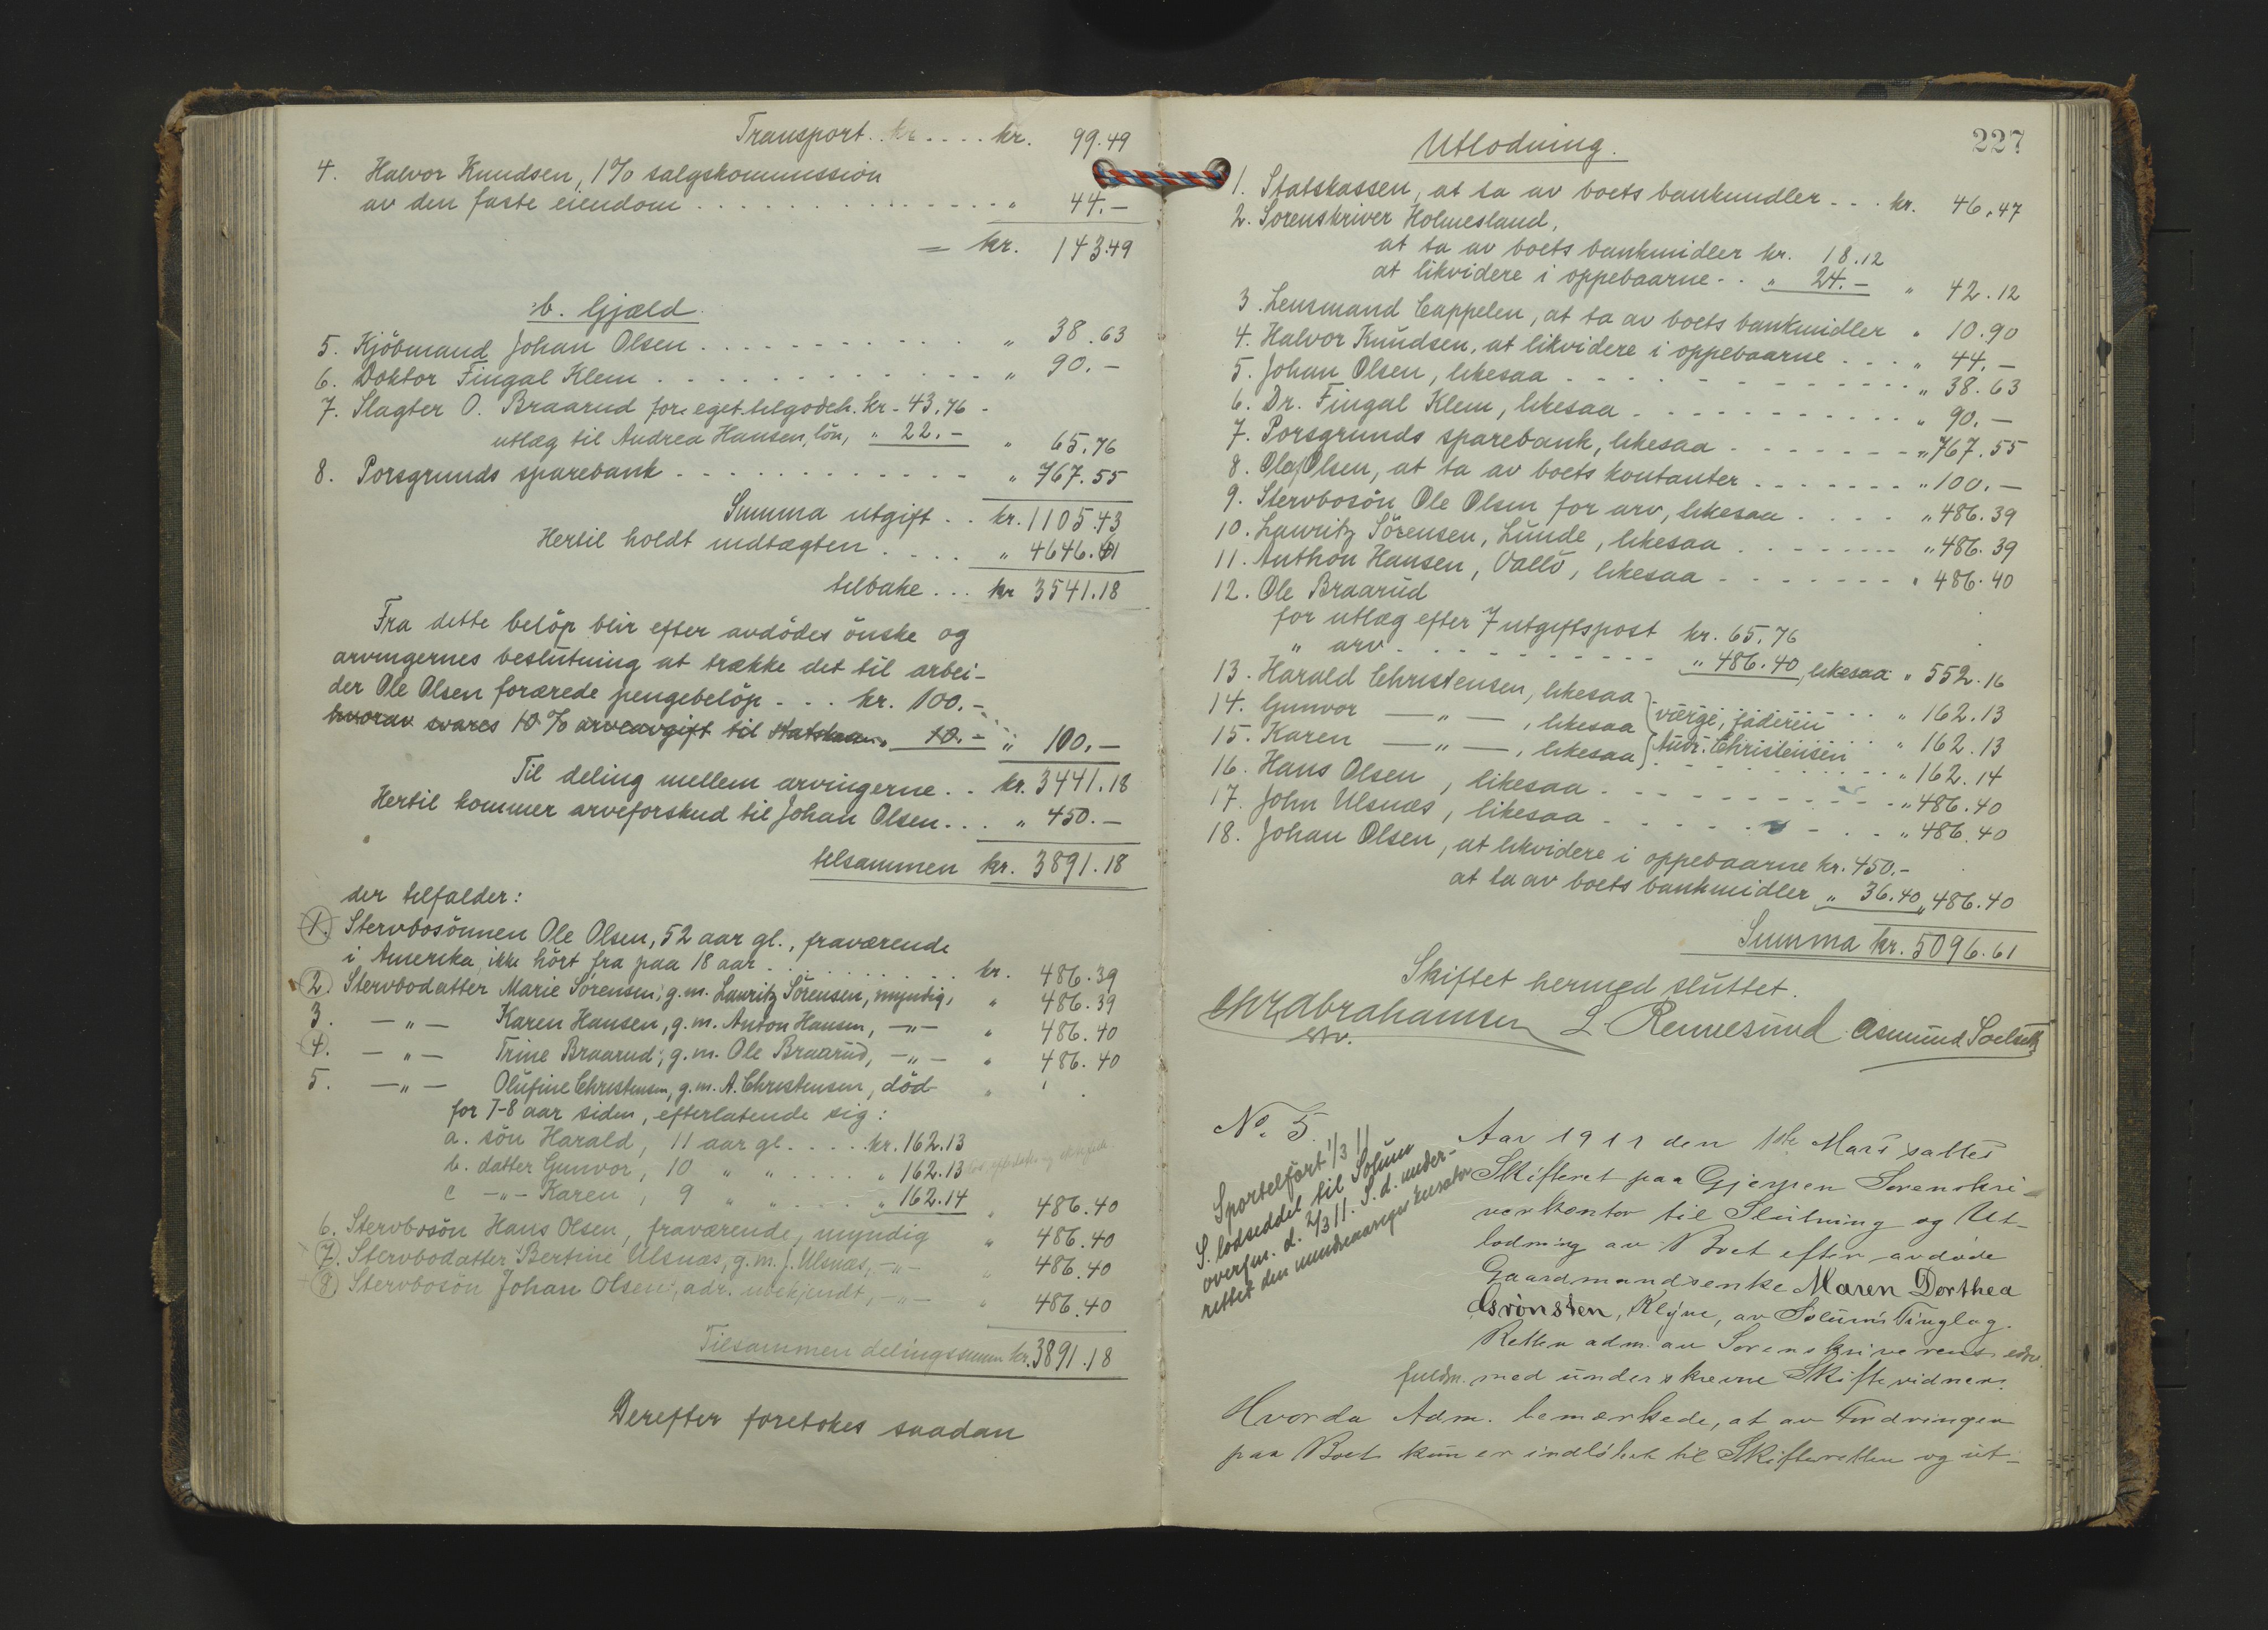 Transport . . kr . . . . kr. 99.49
4. Halvor Knudsen, 1% salgskommission
av den faste eiendom . . . . . . . . . . . . . . . " 44.—
= kr. 143.49
b. Gjæld.
5. Kjöbmand Johan Olsen . . . . . . . . . . . " 38.63
6. Doktor Fingal Klem . . . . . . . . . . . . . " 90.—
7. Slagter O. Braarud for eget tilgodeh. kr. 43.76
utlæg til Andrea Hansen, lön, " 22.— " 65.76
8. Porsgrunds sparebank . . . . . . . . . . . . " 767.55
Summa utgift . . kr. 1105.43
Hertil holdt indtægten . . . . " 4646.61
tilbake . . . kr 3541.18
Fra dette belöp blir efter avdödes önske og
arvingernes beslutning at trække det til arbei-
der Ole Olsen forærede pengebelöp . . . kr. 100.—
hvorav svares 10% arveavgift til Statskassen " 10.— " 100.—
Til deling mellem arvingerne . . kr. 3441.18
Hertil kommer arveforskud til Johan Olsen . . . " 450.—
tilsammen kr. 3891.18
der tilfalder:
1. Stervbosönnen Ole Olsen, 52 aar gl., fraværende
i Amerika, ikke hört fra paa 18 aar . . . . . . . . . . kr. 486.39
2. Stervbodatter Marie Sörensen, g.m. Lauritz Sörensen, myndig, " 486.39
3. —"— Karen Hansen, g.m. Anton Hansen, —"— " 486.40
4. —"— Trine Braarud, g.m. Ole Braarud, —"— " 486.40
5. —"— Olufine Christensen, g.m. A. Christensen, död
for 7-8 aar siden, efterlatende sig:
a. sön Harald, 11 aar gl. . . . . kr. 162.13
b. datter Gunvor, 10 " " . . . . " 162.13
c —"— Karen, 9 " " . . . . " 162.14 " 486.40
6. Stervbosön Hans Olsen, fraværende, myndig " 486.40
7. Stervbodatter Bertine Ulsnæs, g.m. J. Ulsnæs, —"— " 486.40
8. Stervbosön Johan Olsen, adr. ubekjendt, —"— " 486.40
Tilsammen delingssum kr. 3891.18
Derefter foretokes saadan
227
Utlodning.
1. Statskassen, at ta av boets bankmidler . . . kr. 46.47
2. Sorenskriver Holmesland,
at ta av boets bankmidler kr. 18.12
at likvidere i oppebaarne . . " 24.— " 42.12
3. Lensmand Cappelen, at ta av boets bankmidler " 10.90
4. Halvor Knudsen, at likvidere i oppebaarne . . . " 44.—
5. Johan Olsen, likesaa . . . . . . . . . . . . . " 38.63
6. Dr. Fingal Klem, likesaa . . . . . . . . . . . " 90.—
7. Porsgrunds sparebank, likesaa . . . . . . . " 767.55
8. Ole Olsen, at ta av boets kontanter . . . . . . . " 100.—
9. Stervbosön Ole Olsen for arv, likesaa . . . . " 486.39
10. Lauritz Sörensen, Lunde, likesaa . . . . . . . " 486.39
11. Anthon Hansen, Vallö, likesaa . . . . . . . " 486.40
12. Ole Braarud
for utlæg efter 7 utgiftspost kr. 65.76
" arv . . . . . . . . . . . " 486.40, likesaa " 552.16
13. Harald Christensen, likesaa værge, faderen . . . " 162.13
14. Gunvor —"—, likesaa Andr. Christensen . . " 162.13
15. Karen —"—, likesaa . . . . . . . . . " 162.14
16. Hans Olsen, likesaa . . . . . . . . . . . " 486.40
17. John Ulsnæs, likesaa . . . . . . . . . . " 486.40
18. Johan Olsen, at likvidere i oppebaarne kr. 450.—
at ta av boets bankmidler " 36.40 " 486.40
Summa kr. 5096.61
Skiftet hermed sluttet.
Chr. Abrahamsen L Rennesund Asmund
No. 5.
Sportelfört 1/3 11
S. lodseddel til Solum
overfm. d. 2/3 11. S. d. under-
rettet den mindreaariges kurator
Aar 1911 den 1ste Mars sattes
Skifteret paa Gjerpen Sorenskri-
verkontor til Slutning og Ut-
lodning av Boet efter avdöde
Gaardmandsenke Maren Dorthea
Grönsten, Klyve, av Solums Tinglag.
Retten adm. av Sorenskriverens edsv.
fuldm. med underskrevne Skiftevidner.
Hvorda Adm. bemærkede, at av Fordringer
paa Boet kun er indlöbet til Skifteretten og ut-